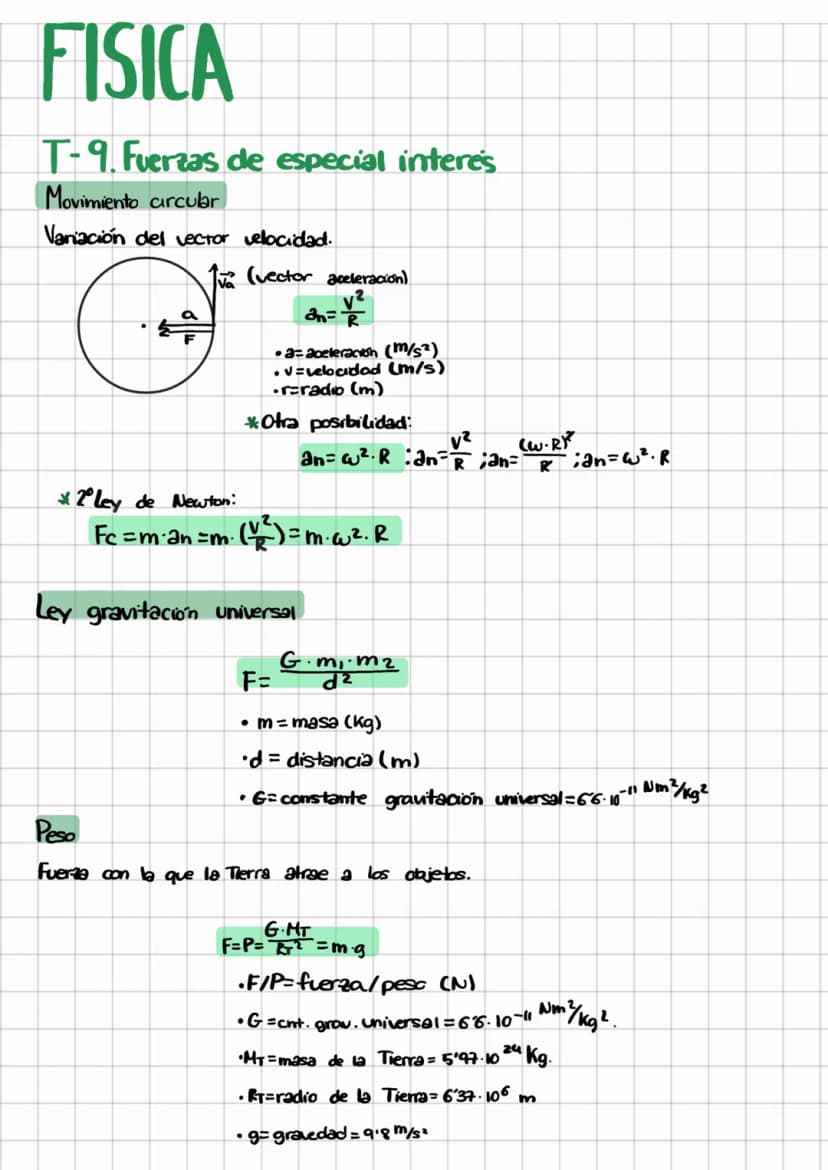 FISICA
T-9. Fuerzas de especial interés
Movimiento circular
Variación del vector velocidad.
Va (vector aceleración)
an = V²/R
a
F
• a = aceleración (m/s²)
• v = velocidad (m/s)
• r = radio (m)
* Otra posibilidad:
an = ω²·R : an = V²/R ; an = (ω·R)²/R ; an = ω²·R
* 2º Ley de Newton:
Fc = m·an = m·(V²/R) = m·ω²·R
Ley gravitación universal
F = G·m₁·m₂/d²
• m = masa (Kg)
• d = distancia (m)
• G = constante gravitación universal = 6'6·10⁻¹¹ Nm²/Kg²
Peso
Fuerza con la que la Tierra atrae a los objetos.
F = P = G·MT/RT² = m·g
• F/P = fuerza/peso (N)
• G = cnt. grav. universal = 6'6·10⁻¹¹ Nm²/Kg².
• MT = masa de la Tierra = 5'97·10²⁴ Kg.
• RT = radio de la Tierra = 6'37·10⁶ m
• g = gravedad = 9'8 m/s²